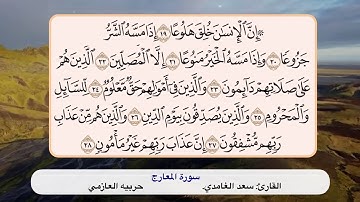 ۞ إِنَّ ٱلْإِنسَٰنَ خُلِقَ هَلُوعًا ١٩ إِذَا مَسَّهُ ٱلشَّرُّ
جَزُوعًا ٢٠ وَإِذَا مَسَّهُ ٱلْخَيْرُ مَنُوعًا ٢١ إِلَّا ٱلْمُصَلِّينَ ٢٢ ٱلَّذِينَ هُمْ
عَلَىٰ صَلَاتِهِمْ دَآئِمُونَ ٢٣ وَٱلَّذِينَ فِىٓ أَمْوَٰلِهِمْ حَقٌّ مَّعْلُومٌ ٢٤ لِّلسَّآئِلِ
وَٱلْمَحْرُومِ ٢٥ وَٱلَّذِينَ يُصَدِّقُونَ بِيَوْمِ ٱلدِّينِ ٢٦ وَٱلَّذِينَ هُم مِّنْ عَذَابِ
رَبِّهِم مُّشْفِقُونَ ٢٧ إِنَّ عَذَابَ رَبِّهِمْ غَيْرُ مَأْمُونٍ ٢٨
سورة المعارج
القارئ: سعد الغامدي. حربيه العازمي